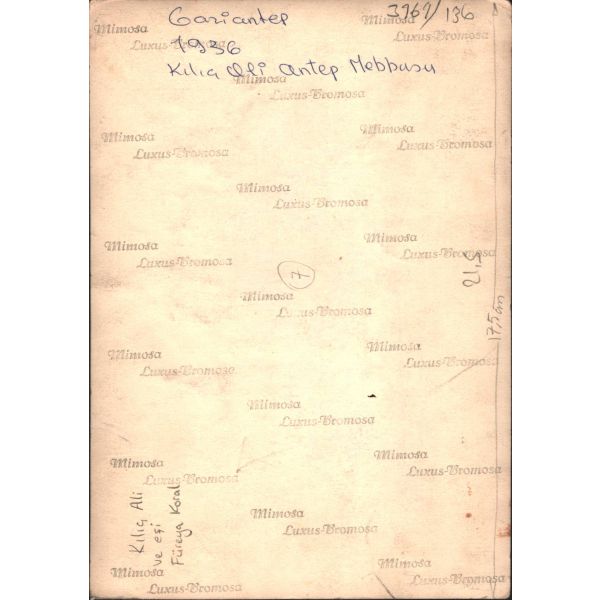 Gaziantep
3767/136
1936
Kılıç Ali Antep Mebbusu
Mimosa
Luxus-Bromosa
Mimosa
Luxus-Bromosa
Mimosa
Luxus-Bromosa
Mimosa
Luxus-Bromosa
Mimosa
Luxus-Bromosa
Mimosa
Luxus-Bromosa
Mimosa
Luxus-Bromosa
Mimosa
Luxus-Bromosa
7
21,5
17,5 cm
Mimosa
Luxus-Bromosa
Mimosa
Luxus-Bromosa
Mimosa
Luxus-Bromosa
Mimosa
Luxus-Bromosa
Mimosa
Luxus-Bromosa
Mimosa
Luxus-Bromosa
Kılıç Ali
ve eşi
Füreya Koral
Mimosa
Luxus-Bromosa
Mimosa
Luxus-Bromosa
Mimosa
Luxus-Bromosa